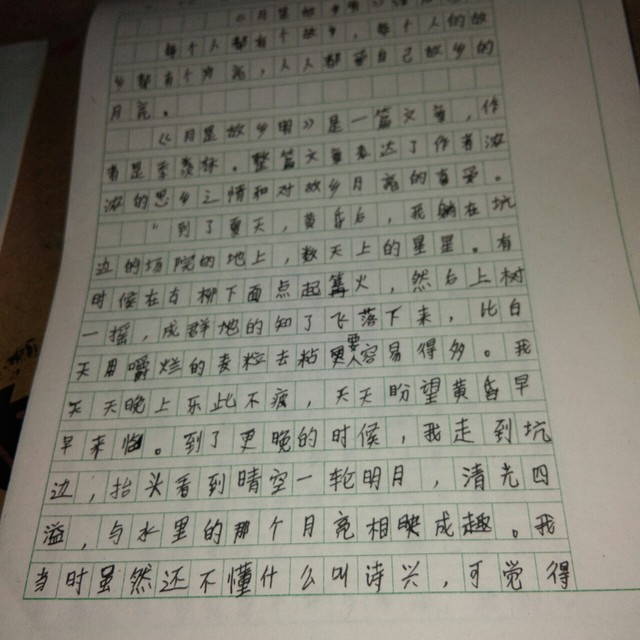 《月是故乡明》
每个人都有个故乡，每个人的故
乡都有个月亮，人人都爱自己故乡的
月亮。
《月是故乡明》是一篇文章，作
者是季羡林。整篇文章表达了作者浓
浓的思乡之情和对故乡月亮的喜爱。
“到了夏天，黄昏后，我躺在坑
边的场院的地上，数天上的星星。有
时候在古柳下面点起篝火，然后上树
一摇，成群地的知了飞落下来，比白
天用嚼烂的麦粒去粘要容易得多。我
天天晚上乐此不疲，天天盼望黄昏早
早来临。到了更晚的时候，我走到坑
边，抬头看到晴空一轮明月，清光四
溢，与水里的那个月亮相映成趣。我
当时虽然还不懂什么叫诗兴，可觉得